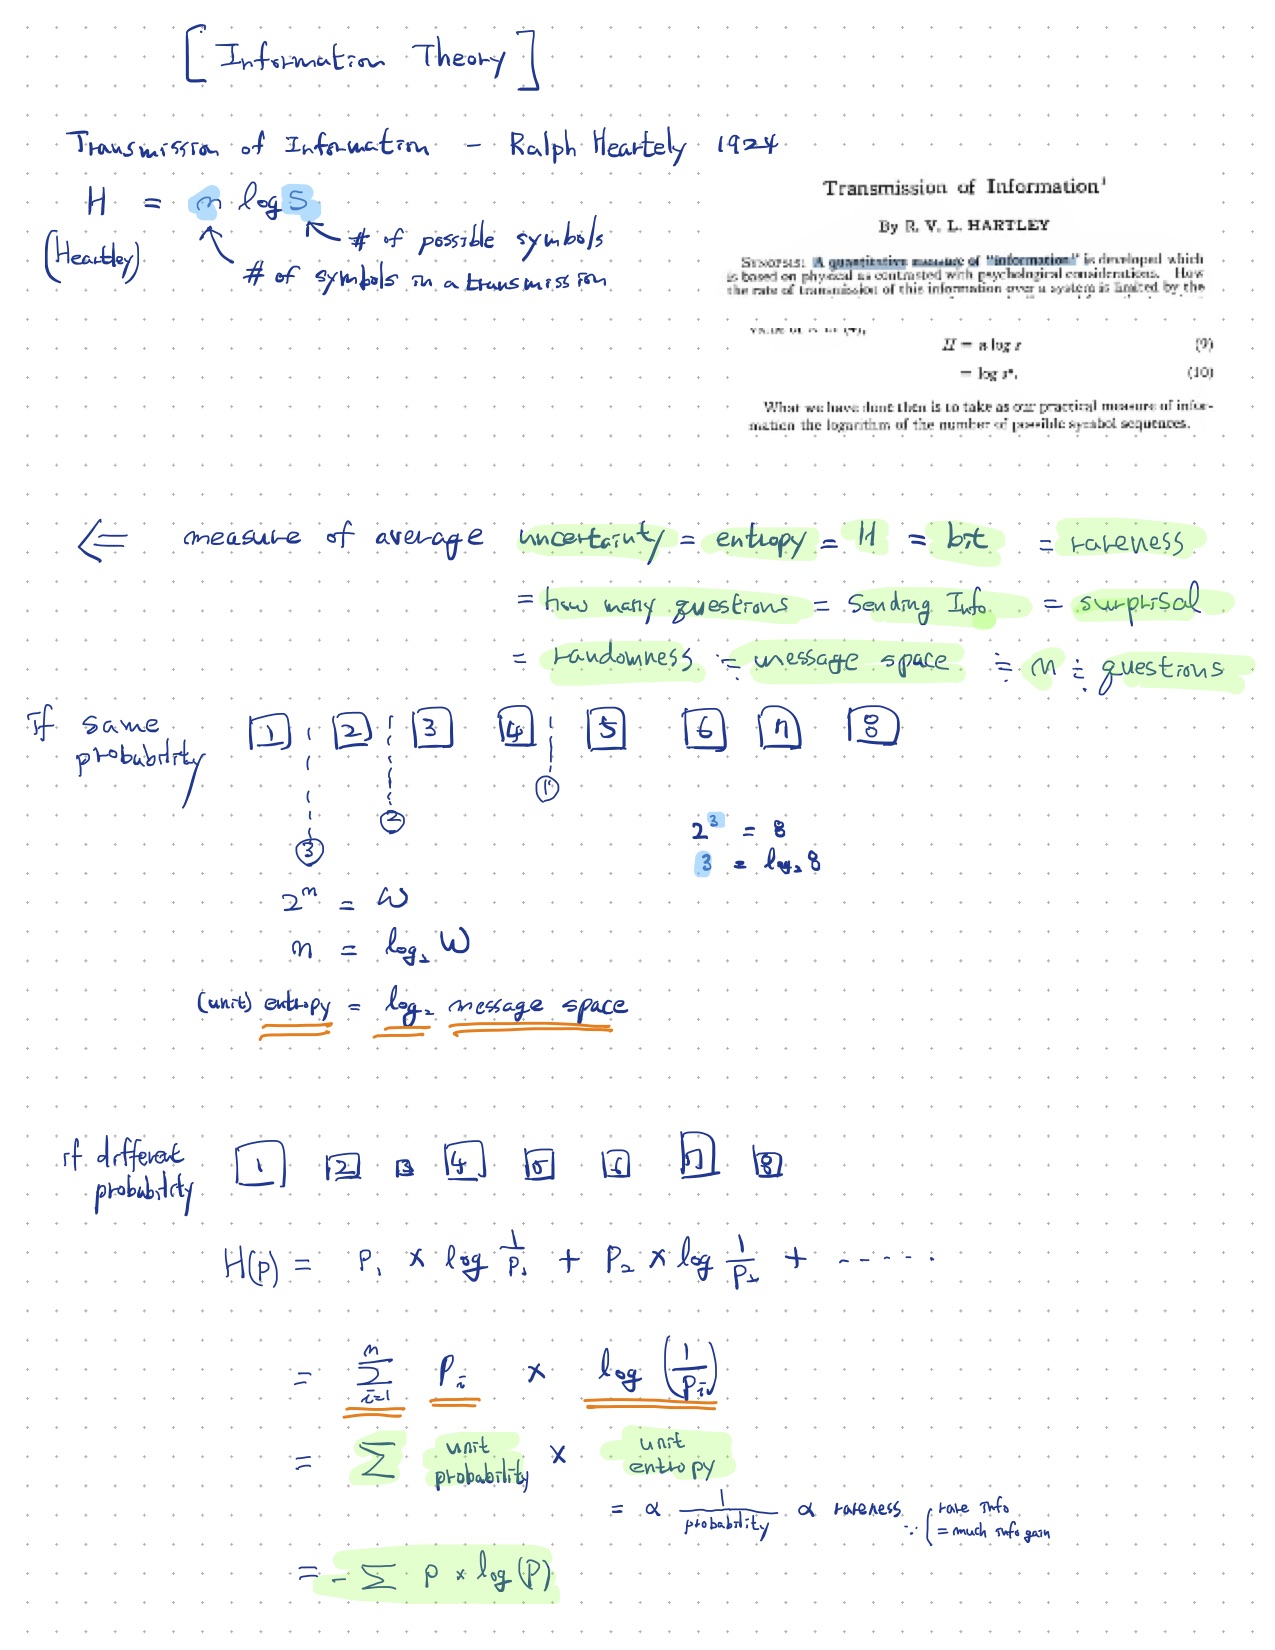 [ Information Theory ]
Transmission of Information - Ralph Heartely 1924
H = n log S
(Heartley)
# of possible symbols
# of symbols in a transmission
Transmission of Information¹
By R. V. L. HARTLEY
SYNOPSIS: A quantitative measure of "information" is developed which
is based on physical as contrasted with psychological considerations. How
the rate of transmission of this information over a system is limited by the
H = n log s (9)
= log sⁿ. (10)
What we have done then is to take as our practical measure of infor-
mation the logarithm of the number of possible symbol sequences.
⇐ measure of average uncertainty = entropy = H = bit = rareness
= how many questions = Sending Info = surprisal
= randomness ≒ message space ≒ n ≒ questions
if same probability
1 2 3 4 5 6 7 8
① ② ③
2³ = 8
3 = log₂ 8
2ⁿ = W
n = log₂ W
(unit) entropy = log₂ message space
if different probability
1 2 3 4 5 6 7 8
H(p) = P₁ × log 1/P₁ + P₂ × log 1/P₂ + ·····
= Σ i=1 n Pᵢ × log (1/Pᵢ)
= Σ unit probability × unit entropy
= ∝ 1/probability ∝ rareness ∵ rare info
= much info gain
= - Σ P × log(P)